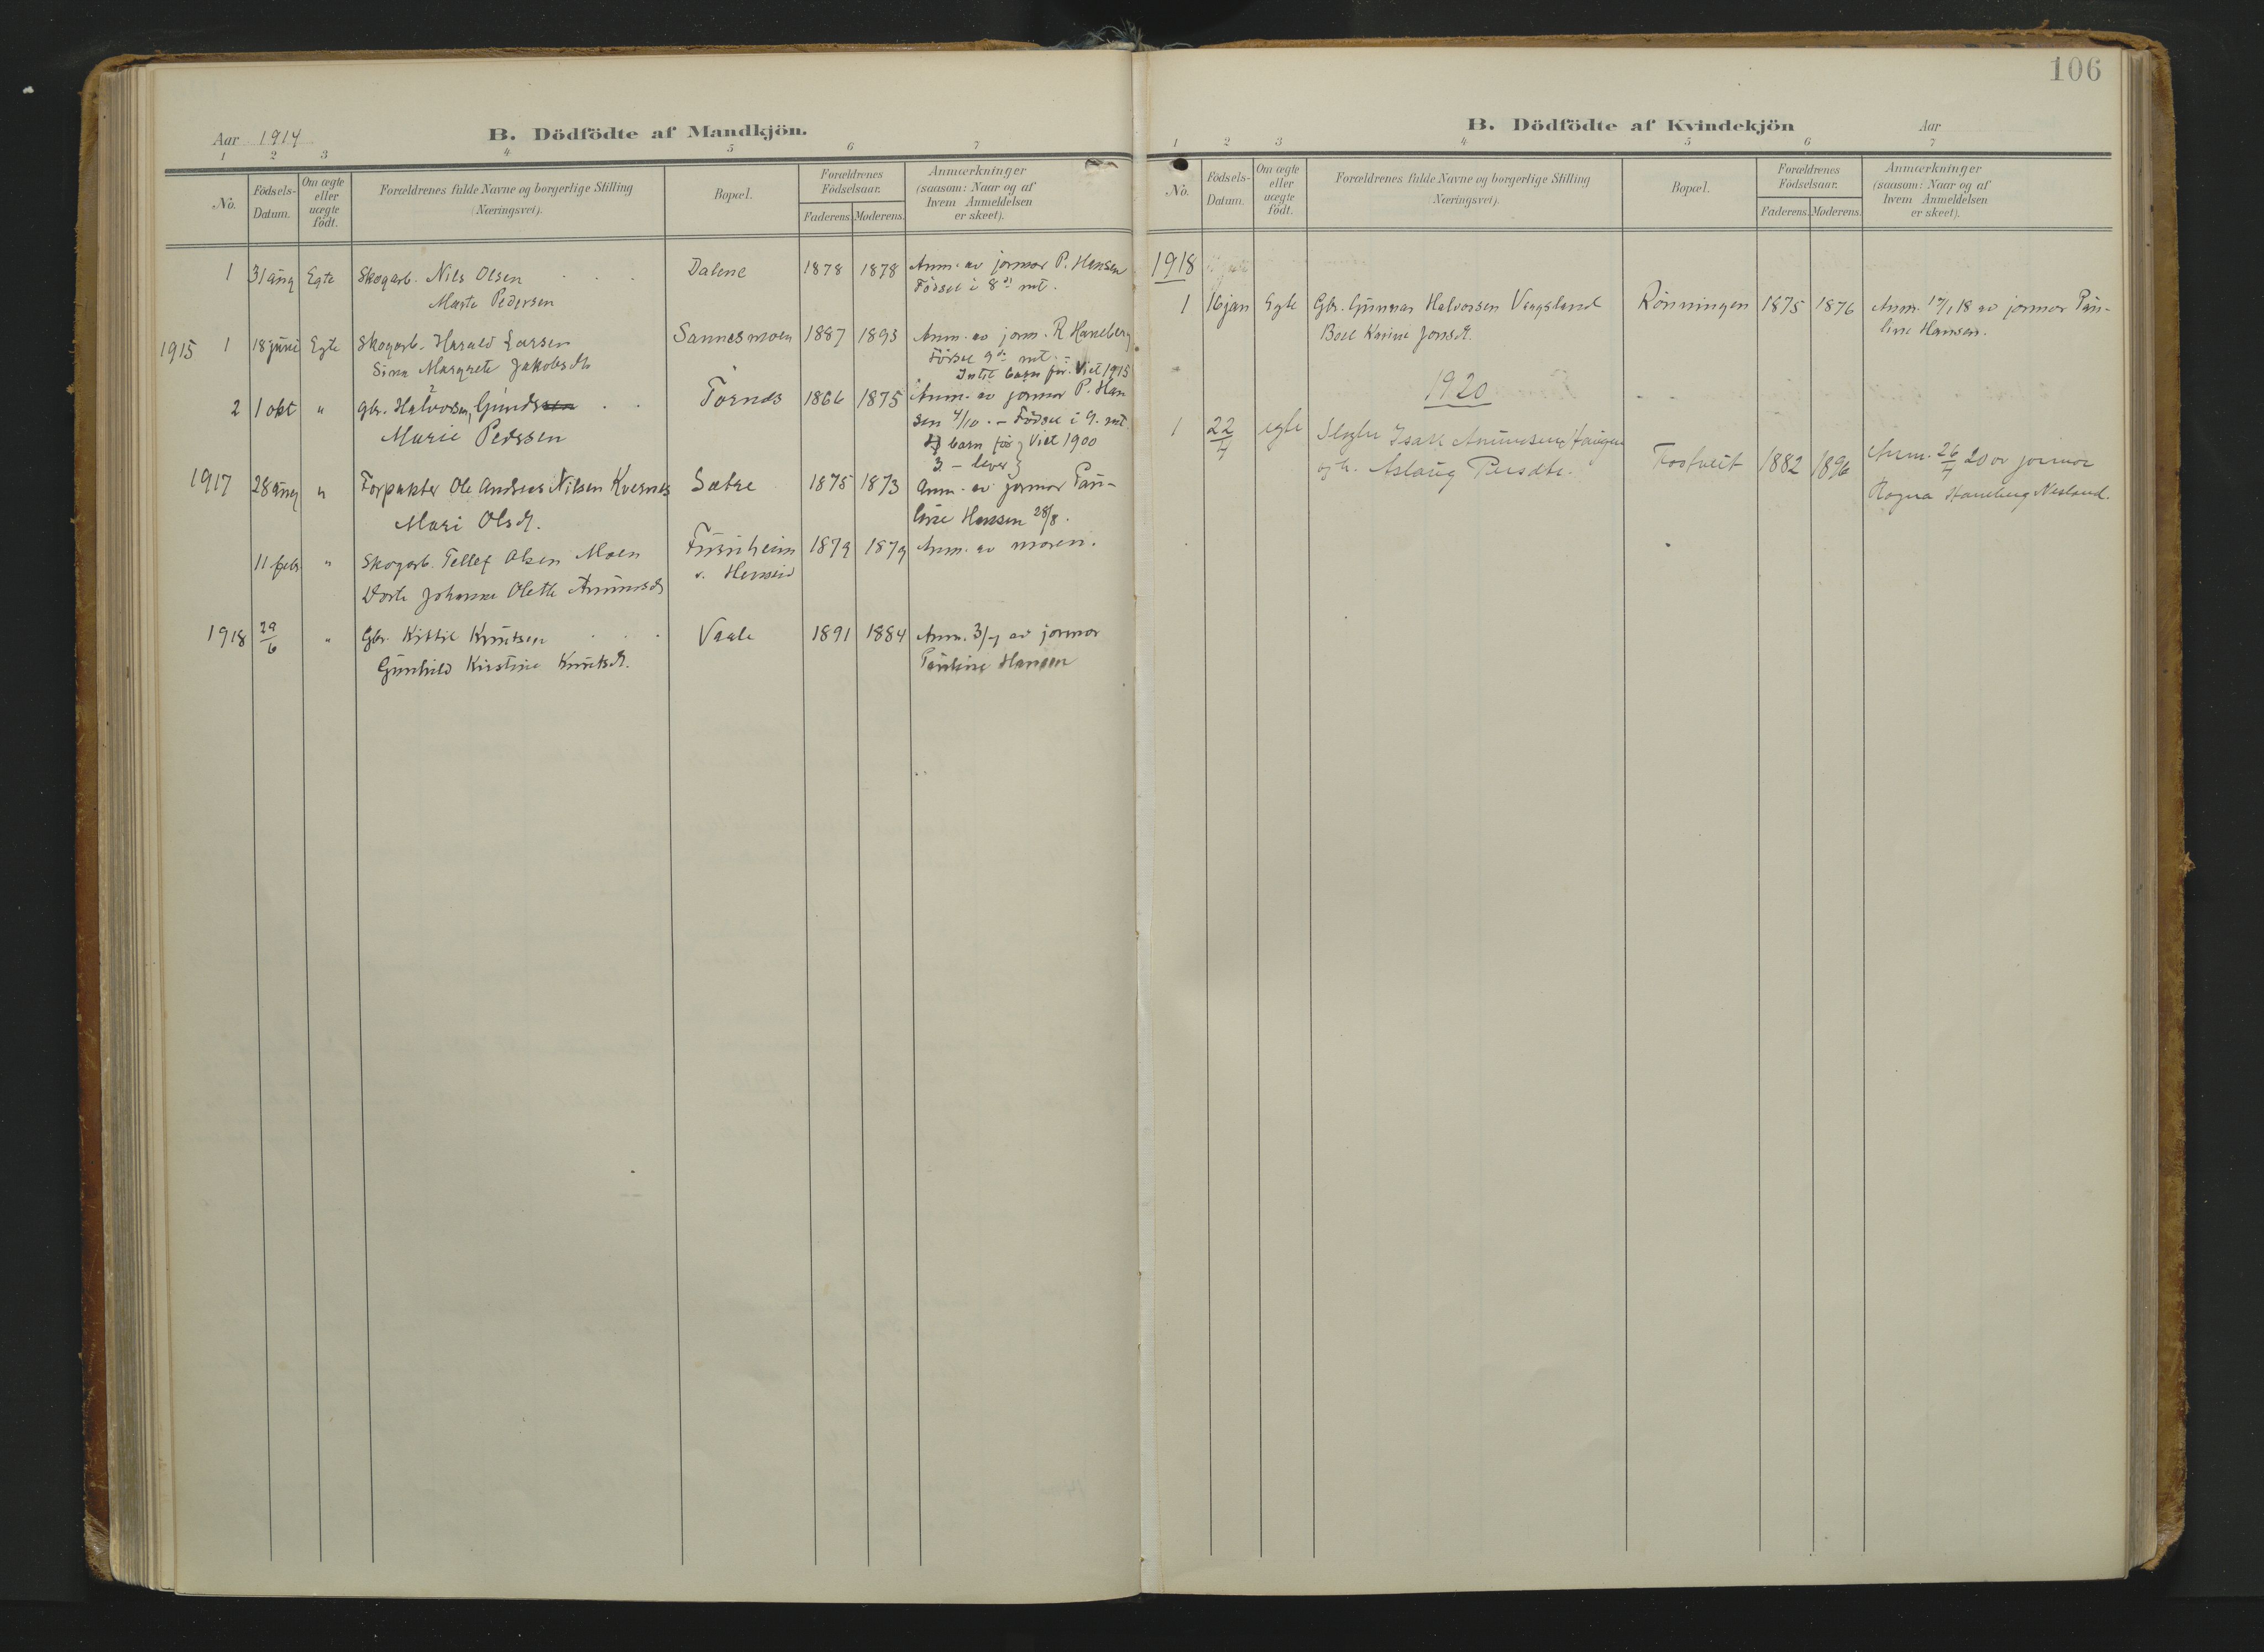 106
Aar 1914
B. Dödfödte af Mandkjön.
1 2 3 4 5 6 7
No.
Födsels-
Datum.
Om ægte
eller
uægte
födt.
Forældrenes fulde Navne og borgerlige Stilling
(Næringsvei).
Bopæl.
Forældrenes
Födselsaar.
Faderens. Moderens.
Anmærkninger
(saasom: Naar og af
hvem Anmeldelsen
er skeet).
1 31 aug Egte Skogarb. Nils Olsen Dalene 1878 1878 Anm. av jormor P. Hansen
Marte Pedersen Födsel i 8de mt.
1915 1 18 juni Egte Skogarb. Harald Larsen Sannesmoen 1887 1893 Anm. av jorm. R Haneberg
Sina Margrete Jakobsdt Födsel 9de mt.
Intet barn för. Viet 1915
2 1 okt " Gbr. Halvorsen, Gunds Tornes 1866 1875 Anm. av jormor P. Han
Marie Pedersen sen 4/10. - Födsel i 9. mt.
barn för } Viet 1900
3 - lever }
1917 28 aug " Forpakter Ole Andreas Nilsen Kvernes Sætre 1875 1873 Anm. av jormor Pau-
Mari Olsdt. line Hansen 28/8.
11 febr " Skogarb. Tellef Olsen Moen Furuheim 1879 1879 Anm. av moren.
Dorte Johanne Olette Amunsdt
1918 29/6 " Gbr. Kittil Knutsen Vaale 1891 1884 Anm. 3/7 av jormor
Gunhild Kirstine Knutsdt. Pauline Hansen
B. Dödfödte af Kvindekjön
Aar
1 2 3 4 5 6 7
No.
Födsels-
Datum.
Om ægte
eller
uægte
födt.
Forældrenes fulde Navne og borgerlige Stilling
(Næringsvei).
Bopæl.
Forældrenes
Födselsaar.
Faderens. Moderens.
Anmærkninger
(saasom: Naar og af
hvem Anmeldelsen
er skeet).
1918
1 16 jan Egte Gbr. Gunnar Halvorsen Vegusland Rönningen 1875 1876 Anm. 17/1 18 av jormor Pau-
Boel Karine Jonsdt. line Hansen.
1920
1 22/4 egte Isak Amundsen Haugen Fostveit 1882 1896 Anm. 26/4 20 av jormor
og h. Aslaug Persdtr. Ragna Haneberg Nesland.